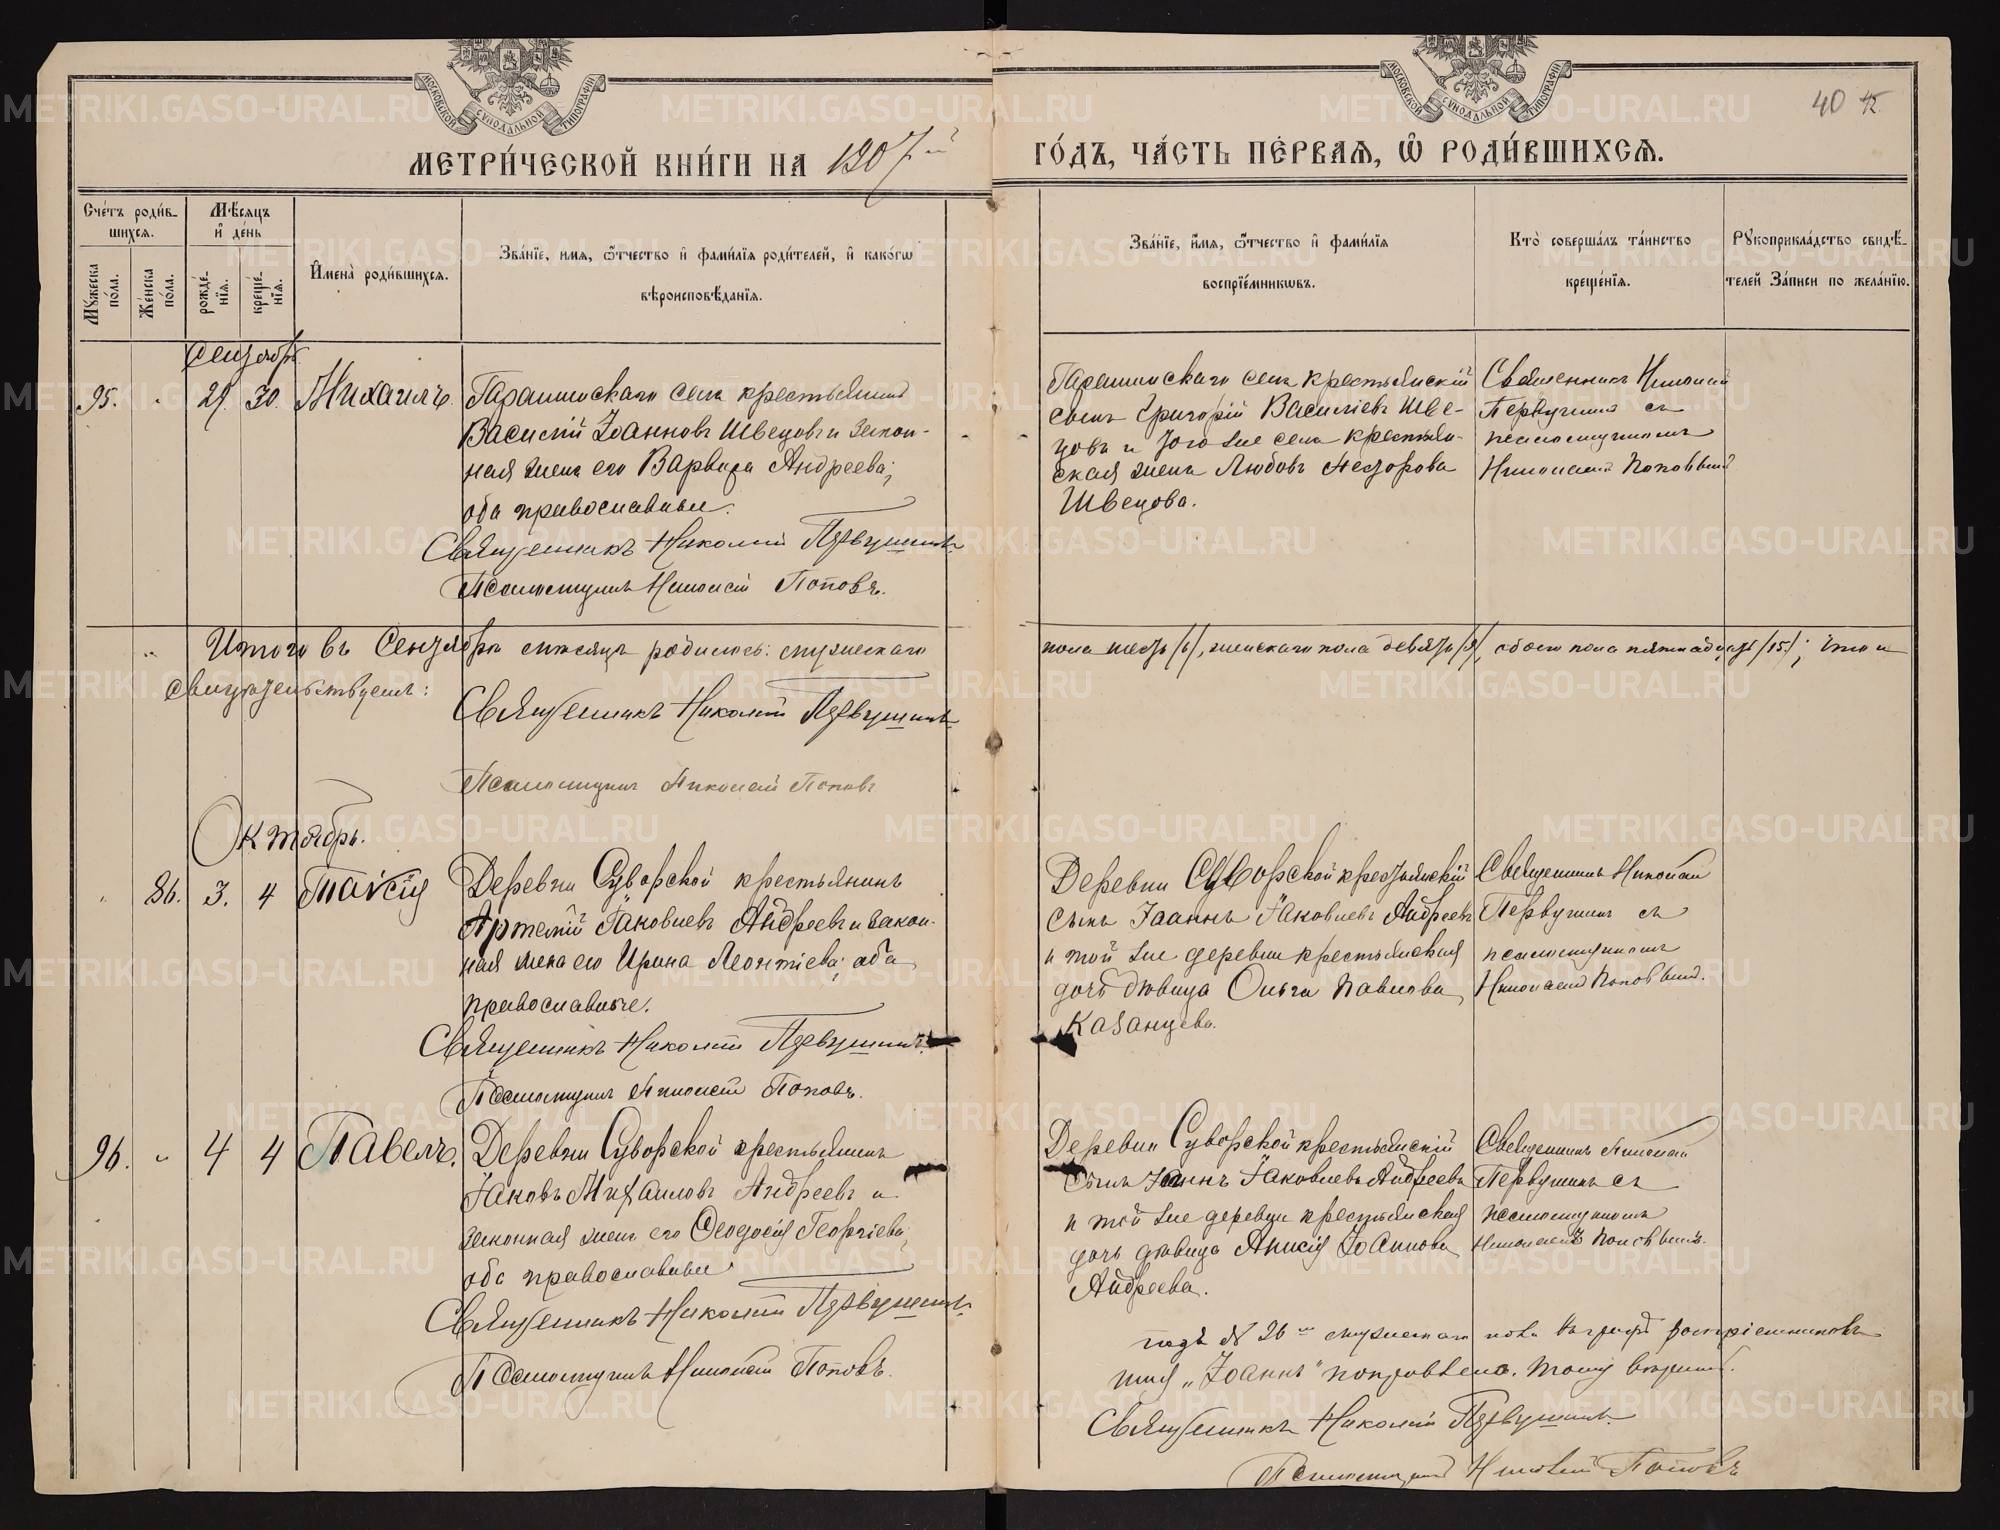 МОСКОВСКОЙ СУНОДАЛЬНОЙ ТИПОГРАФІИ
МОСКОВСКОЙ СУНОДАЛЬНОЙ ТИПОГРАФІИ
40
МЕТРИ́ЧЕСКОЙ КНИ́ГИ НА 1907й
ГО́ДЪ, ЧА́СТЬ ПЕ́РВАѦ, Ѽ РОДИ́ВШИХСѦ.
Сче́тъ роди́в-
шихсѧ.
Мѣ́сѧцъ
и҆ де́нь
Мꙋ́жеска
по́ла.
Же́нска
по́ла.
рожде́-
нїѧ.
креще́-
нїѧ.
И҆мена̀ роди́вшихсѧ.
Зва́нїе, имѧ, ѻ҆́тчество и҆ фами́лїѧ роди́телей, и҆ како́гѡ
вѣроисповѣ́данїѧ.
Зва́нїе, и҆́мѧ, ѻ҆́тчество и҆ фами́лїѧ
воспрїе́мникѡвъ.
Кто̀ соверша́лъ та́инство
креще́нїѧ.
Рꙋкоприкла́дство свидѣ́-
телей За́писи по жела́нїю.
Сентябрь
95. 29. 30. Михаилъ.
Гарашкинскаго села крестьянинъ
Василій Іоанновъ Швецовъ и закон-
ная жена его Варвара Андреева;
оба православные.
Священникъ Николай Первушинъ
Псаломщикъ Николай Поповъ.
Сынъ Григорій Василіевъ Шве-
цовъ и того же села крестьян-
ская жена Любовь
Швецова.
Священникъ Николай
Первушинъ съ
псаломщикомъ
Николаемъ Поповымъ
Итого въ Сентябрѣ мѣсяцѣ родилось: мужескаго
пола шесть /6/, женскаго пола девять /9/, обоего пола пятнадцать /15/; что и
свидѣтельствуемъ:
Священникъ Николай Первушинъ
Псаломщикъ Николай Поповъ
Октябрь.
86. 3. 4 Таисія
Деревни Суворской крестьянинъ
Артемій Іаковлевъ Андреевъ и закон-
ная жена его Ирина Леонтіева; оба
православные.
Священникъ Николай Первушинъ.
Псаломщикъ Николай Поповъ.
Деревни Суворской крестьянскій
сынъ Іоаннъ Іаковлевъ Андреевъ
и той же деревни крестьянская
дочь дѣвица Ольга Павлова
Казанцева.
Священникъ Николай
Первушинъ съ
псаломщикомъ
Николаемъ Поповымъ.
96. 4 4 Павелъ.
Деревни Суворской крестьянинъ
Іаковъ Михаиловъ Андреевъ и
законная жена его Ѳеодосія Георгіева;
оба православные
Священникъ Николай Первушинъ
Псаломщикъ Николай Поповъ.
Деревни Суворской крестьянскій
сынъ Іоаннъ Іаковлевъ Андреевъ
и той же деревни крестьянская
дочь дѣвица Анисія Іоаннова
Андреева.
Священникъ Николай
Первушинъ съ
псаломщикомъ
Николаемъ Поповымъ.
мужескаго пола въ графѣ воспріемниковъ
имя „Іоаннъ" поправлено.
Священникъ Николай Первушинъ.
Псаломщикъ Николай Поповъ
METRIKI.GASO-URAL.RU